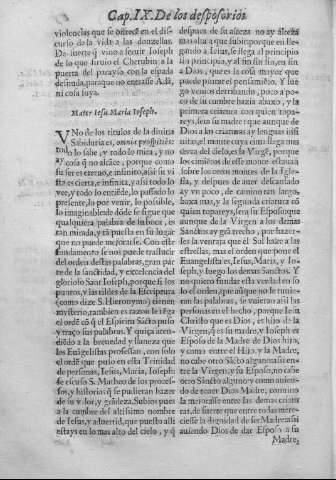 Cap. IX. De los desposorios
violencias que se ofrecē en el dis-
curso de la vida a las donzellas.
De suerte q̃ vino a seruir Ioseph
de lo que siruio el Cherubin a la
puerta del parayso con la espada
desnuda, para que no entrasse Adã,
ni cosa suya.
Mater Iesu Maria Ioseph.
VNo de los titulos de la diuina
Sabiduria es, omnia prospiciens:
todo lo sabe, y todo lo mira, y no
ay cosa q̃ no alcãce, porque como
su ser es eterno, e infinito, assi su vi
sta es cierta, e infinita, y assi todo lo
vee, y todo lo entiẽde, lo passado lo
presente, lo por venir, lo possible, lo
imaginable dõde se sigue que
qualquiera palabra de su boca, es
tan mirada, y tã puesta en su lugar
que no puede mejorarse. Con este
fundamento se nos puede traslucir
del orden destas palabras, gran par
te de la sanctidad, y excelencia del
glorioso Sant Ioseph, porque si los
puntos, y las tildes de la Escriptura
(como dize S. Hieronymo) tienen
mysterio, tambien es razon le tēga
el ordē cõ q̃ el Espiritu Sãcto puso
y traço sus palabras. Y quiça aten-
diēdo a la breuedad y llaneza que
los Euãgelistas professan, con solo
el ordē que puso en esta Trinidad
de personas, Iesus, Maria, Ioseph
se escusò S. Matheo de los proces-
sos, y historias q̃ se pudieran hazer
de su valor, y grãdeza. Subios pues
a la cumbre del altissimo nombre
de Iesus, y aduertid, que puesto alli
estays en lo mas alto del cielo, y q̃
despues de su alteza no ay alteza
mas alta a que subir, porque en lle-
gando a Iesus, se llega al principio
sin principio, y al fin sin fin sin a
Dios, que es la cosa mayor que
puede pensarse, ni imaginarse. Y
luego venios derribando, poco a po-
co de su cumbre hazia abaxo, y la
primera criatura con quien topa-
reys, serà su madre que aunque de
Dios a las criaturas ay lenguas infi-
nitas, el matiz cuya cima llega mas
cerca del cielo, es la Virgẽ, porque
los cimiētos de esse monte estauã
sobre los otros montes de la Igle-
sia, y despues de auer descansado
ay vn poco, de caminos tan largos,
baxa mas, y la segunda criatura cõ
quien topareys, serà su Esposo que
aunque de la Virgen a los demas
Sanctos ay grã trecho, por hazer-
les la ventaja que el Sol haze a las
estrellas, mas el orden que pone el
Euangelista es, Iesus, Maria, y Io-
seph, y luego los demas Sanctos. Y
no quiero fundar esta verdad en so
lo el orden, que aũque no le tuuie-
ran las palabras, se vuieran assi las
personas en el hecho, porque Iesu
Christo que es Dios, es hijo de la
Virgen, y es su madre, y Ioseph es
Esposo de la Madre de Dios hijo,
y como entre el Hijo, y la Madre,
no cabe otro Sãcto alguno, assi en-
tre la Virgen, y su Esposo, no cabe
otro Sãncto alguno y como auien-
do de tener Dios Madre, conuino
la merezasse entre las demas criatu-
ras, de suerte que entre todas mere-
ciesse la dignidad de ser Madre assi
auiendo Dios de dar Esposo a su
Madre,